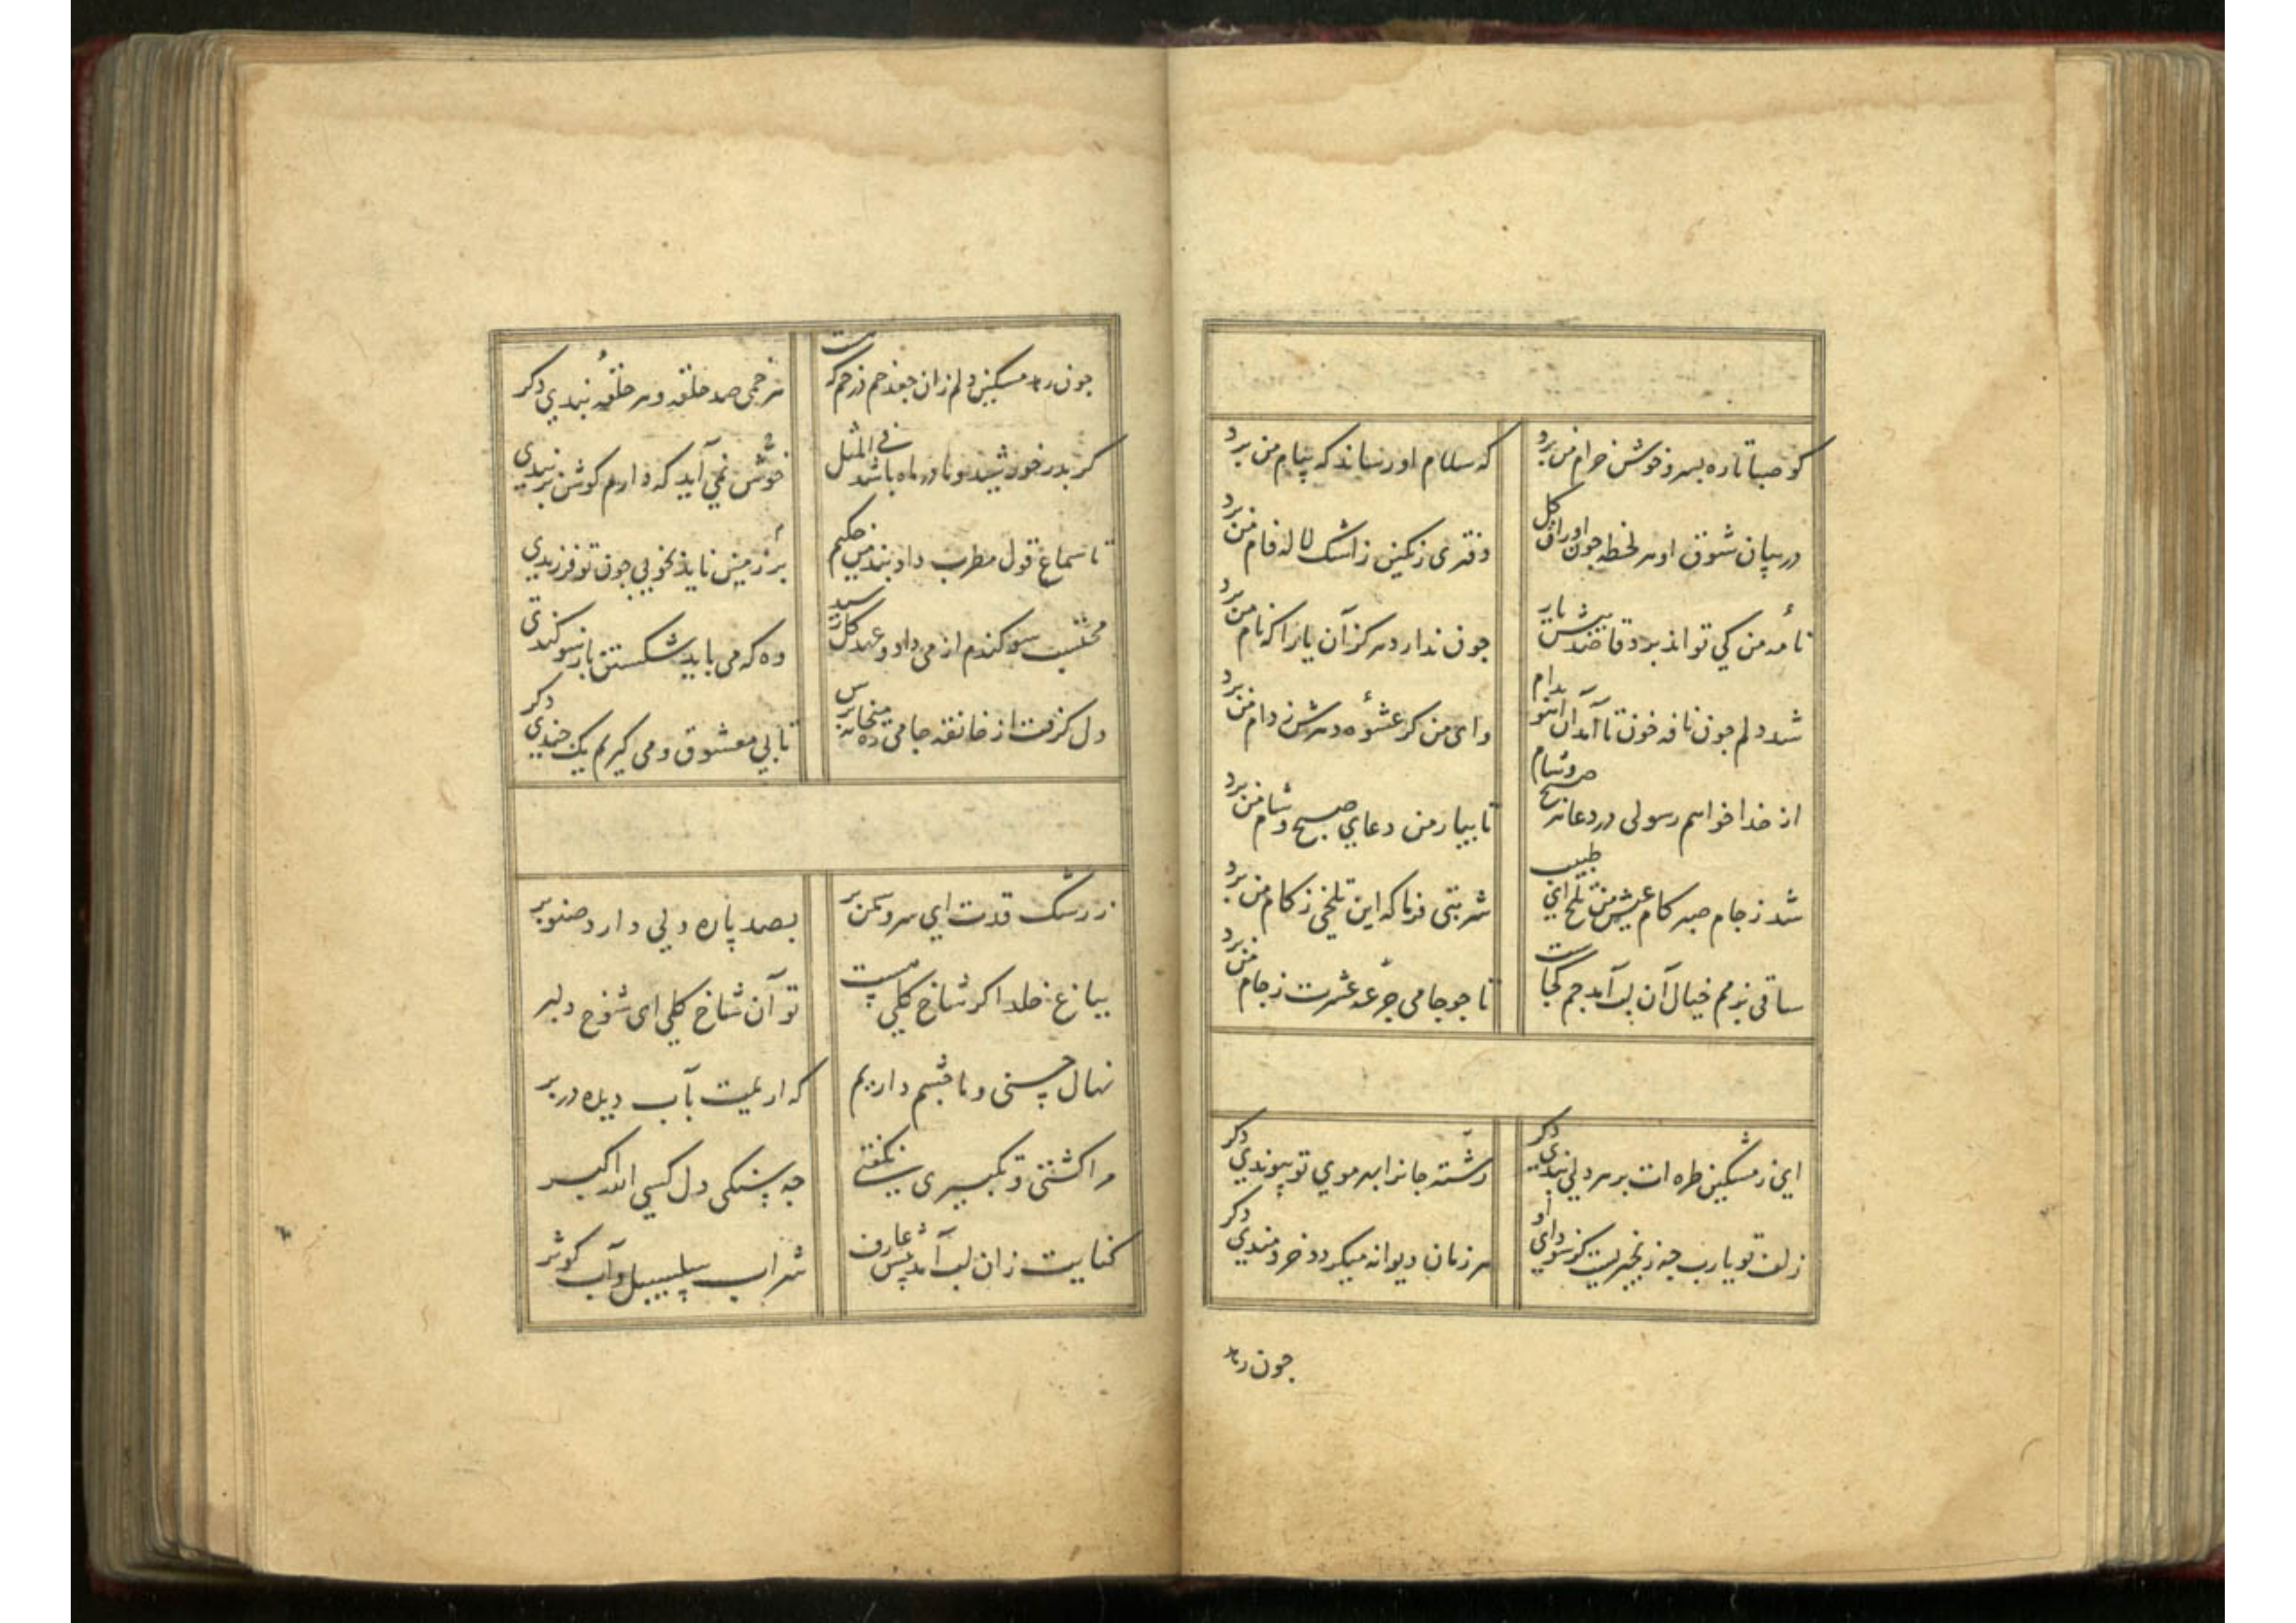 کو صبا تا ره بسرو خوش خرام من برد
که سلام او رساند که پیام من برد
در بیان شوق او هر لحظه جون اوراق کل
دفتری رنکین ز اشک لاله فام من برد
نامه من کی تواند برد قاصد پیش یار
جون ندارد هرکز آن یارا که نام من برد
شد دلم جون نافه خون تا آمد آن آهو بدام
وای من کر عشوه دهرش ز دام من برد
از خدا خواهم رسولی در دعا هر صبح و شام
تا بیار من دعای صبح و شام من برد
شد ز جام صبر کام عیش من تلخ ای طبیب
شربتی فرما که این تلخی ز کام من برد
ساقی بزمم خیال آن لب آمد جم کجاست
تا جو جامی جرعه عشرت ز جام من برد
ای ز مشکین طره ات بر هر دلی بندی دکر
رشته جانرا بهر موی تو پیوندی دکر
زلف تو یارب جه زنجیریست کز سودای او
هر زمان دیوانه میکردد خردمندی دکر
جون رهد
جون رهد مسکین دلم زان جعد خم در خم که هست
هر خمی صد حلقه و هر حلقه بندی دکر
کر بدر خورشید و مادر ماه باشد فی المثل
بر زمین ناید بخوبی جون تو فرزندی
تا سماع قول مطرب داد بندم ای حکیم
خوش نمی آید که دارم کوش بر بندی
محتسب سوکندم از می داد و عهد کل رسید
وه که می باید شکستن باز سوکندی
دل کرفت از خانقه جامی ره میخانه پرس
تا پی معشوق و می کیریم یک جندی دکر
ز رشک قدت ای سرو سمن بر
بصد پاره دلی دارد صنوبر
بباغ خلد اکر شاخ کلی هست
تو آن شاخ کلی ای شوخ دلبر
نهال حسنی و ما چشم داریم
که اریمت بآب دیده در بر
مرا کشتی و تکبیری نکفتی
جه سنکین دل کسی الله اکبر
کنایت زان لب آمد پیش عارف
شراب سلسبیل و آب کوثر